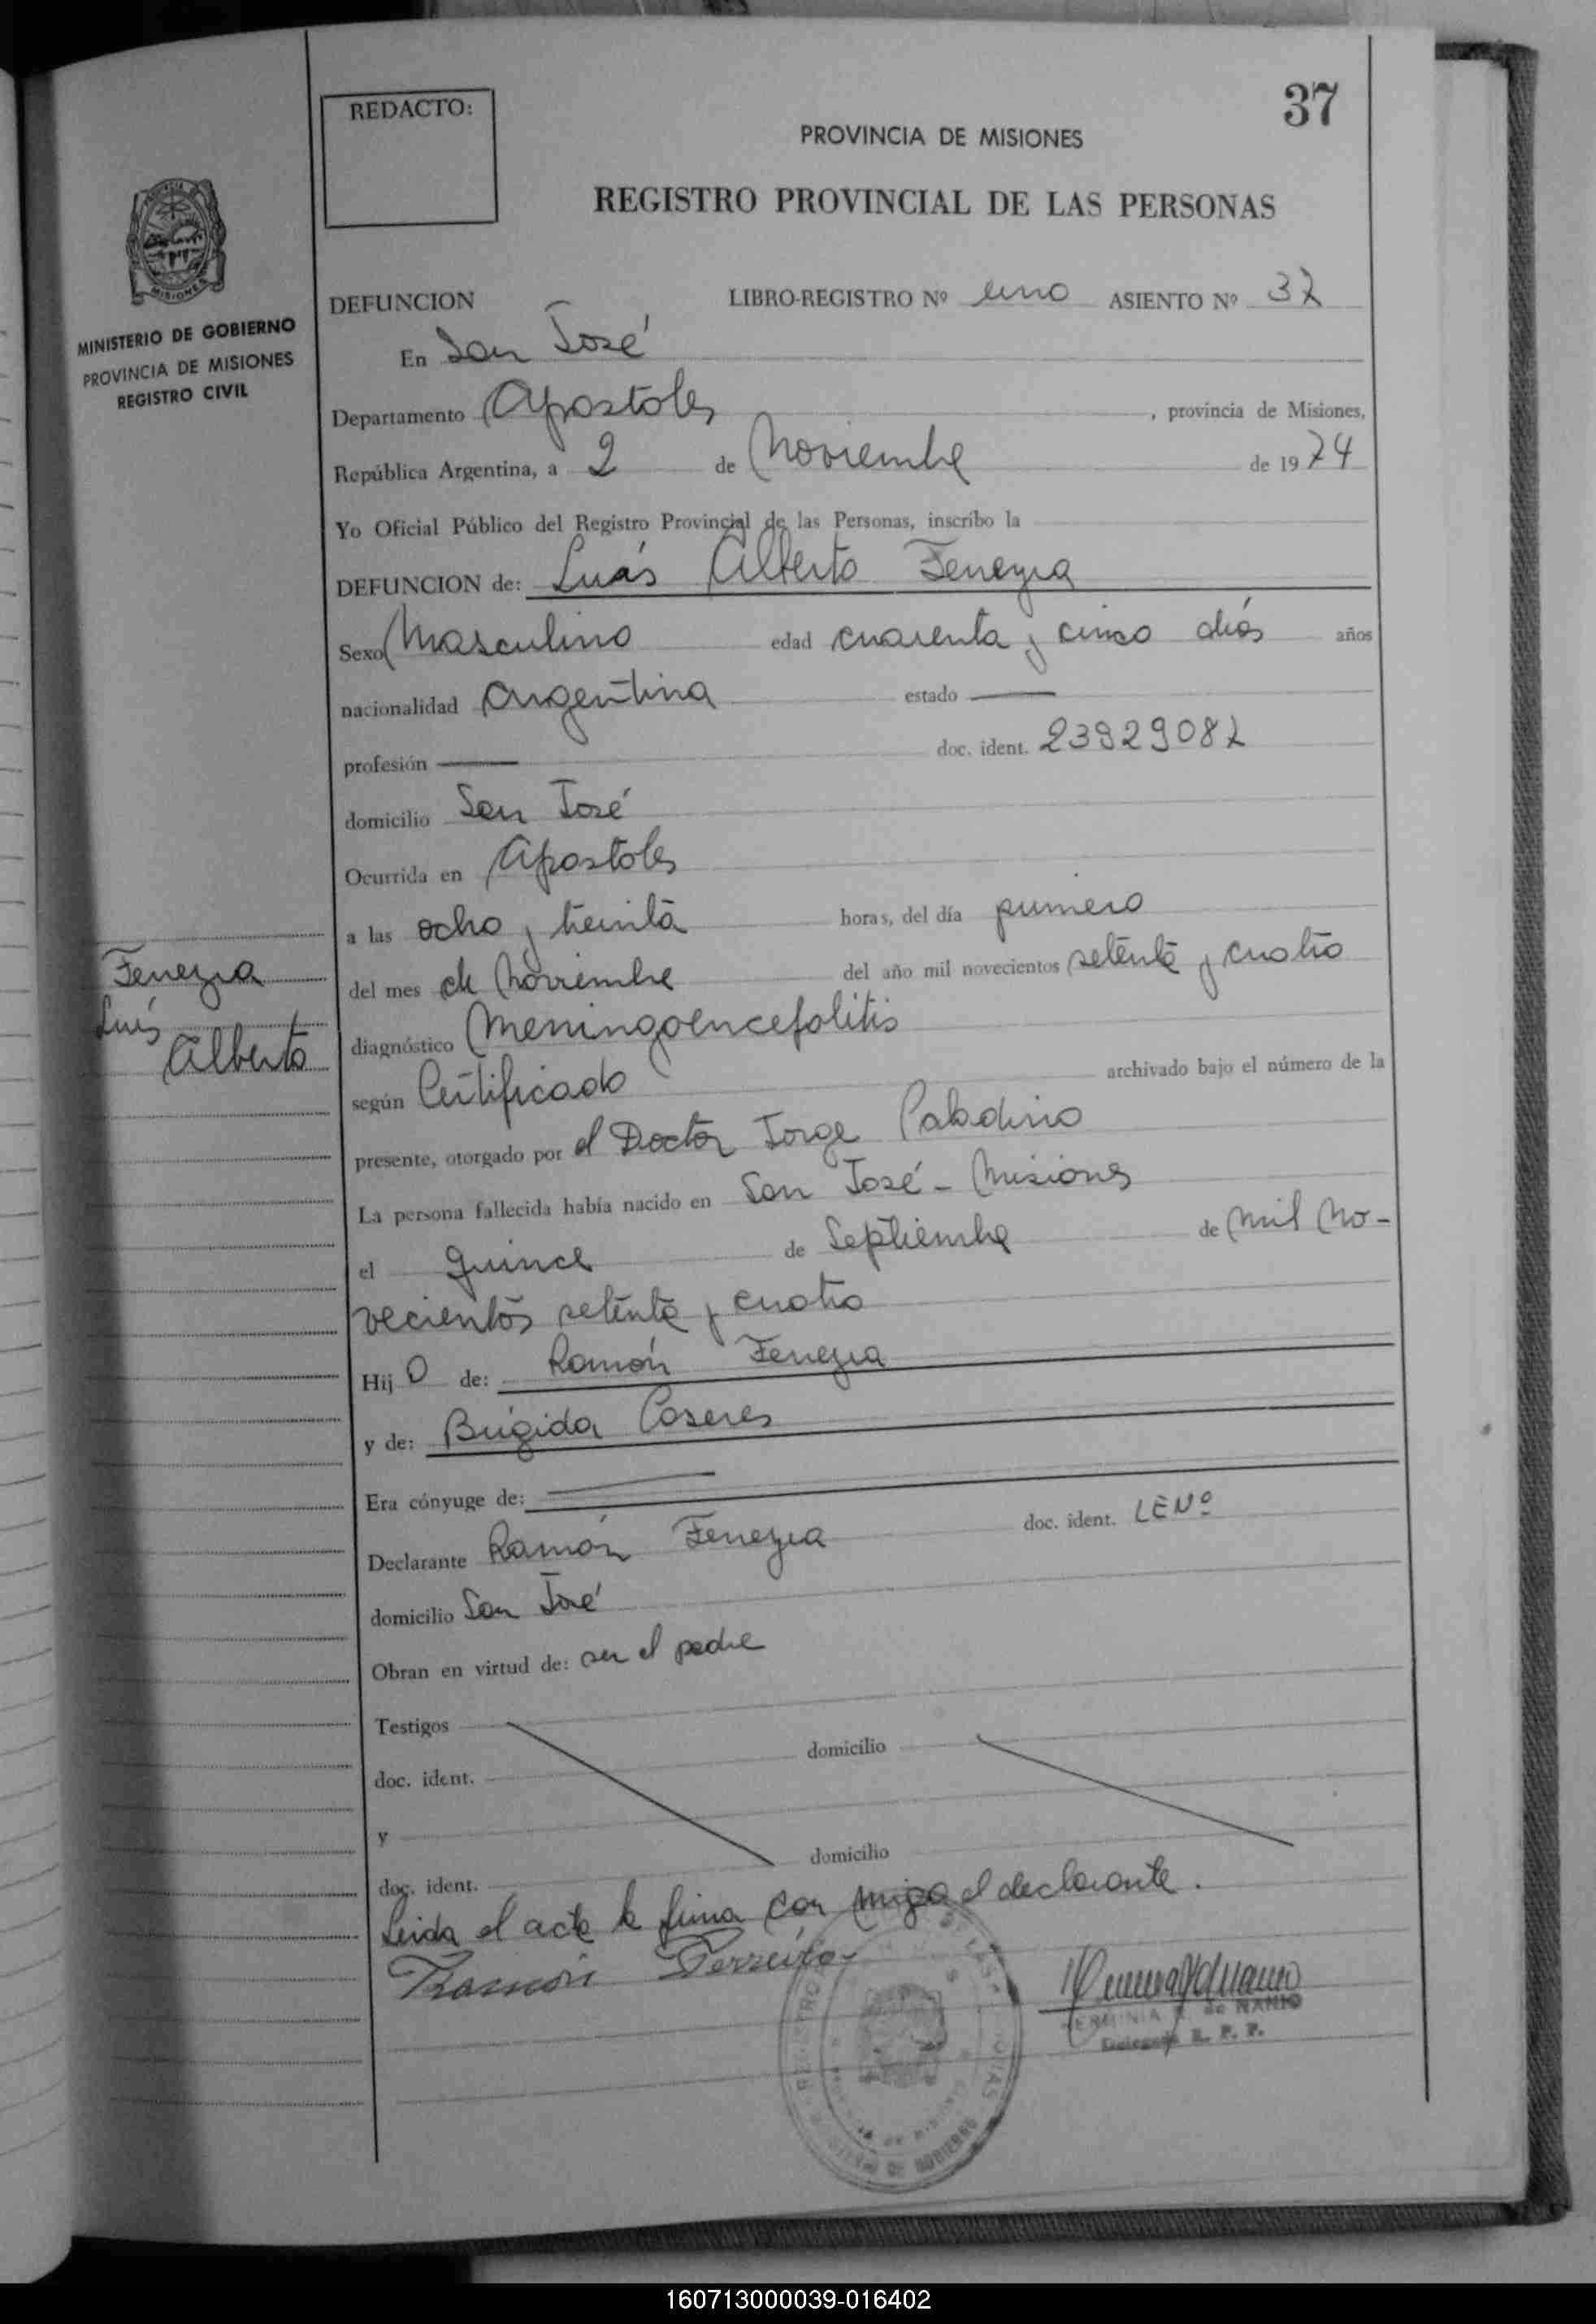 37
REDACTO:
PROVINCIA DE MISIONES
REGISTRO PROVINCIAL DE LAS PERSONAS
MISIONES
MINISTERIO DE GOBIERNO
PROVINCIA DE MISIONES
REGISTRO CIVIL
DEFUNCION LIBRO-REGISTRO Nº uno ASIENTO Nº 37
En San José
Departamento Apostoles, provincia de Misiones,
República Argentina, a 2 de Noviembre de 1974
Yo Oficial Público del Registro Provincial de las Personas, inscribo la
DEFUNCION de: Luis Alberto Ferreyra
Sexo Masculino edad cuarenta y cinco días años
nacionalidad Argentina estado —
profesión — doc. ident. 23929087
domicilio San José
Ocurrida en Apostoles
a las ocho y treinta horas, del día primero
del mes de Noviembre del año mil novecientos setenta y cuatro
diagnóstico Meningoencefalitis
según Certificado archivado bajo el número de la
presente, otorgado por el Doctor Jorge Paladino
La persona fallecida había nacido en San José - Misiones
el quince de Septiembre de mil no-
vecientos setenta y cuatro
Hijo de: Ramón Ferreyra
y de: Brigida Caseres
Era cónyuge de: —
Declarante Ramón Ferreyra doc. ident. LENº
domicilio San José
Obran en virtud de: ser el padre
Testigos
doc. ident. domicilio
y
doc. ident. domicilio
Leida el acta la firma con migo el declarante.
Ramón Ferreira
Ferreyra
Luis
Alberto
HERMINIA de NANIO
Delegada R. P. P.
DE GOBIERNO
160713000039-016402